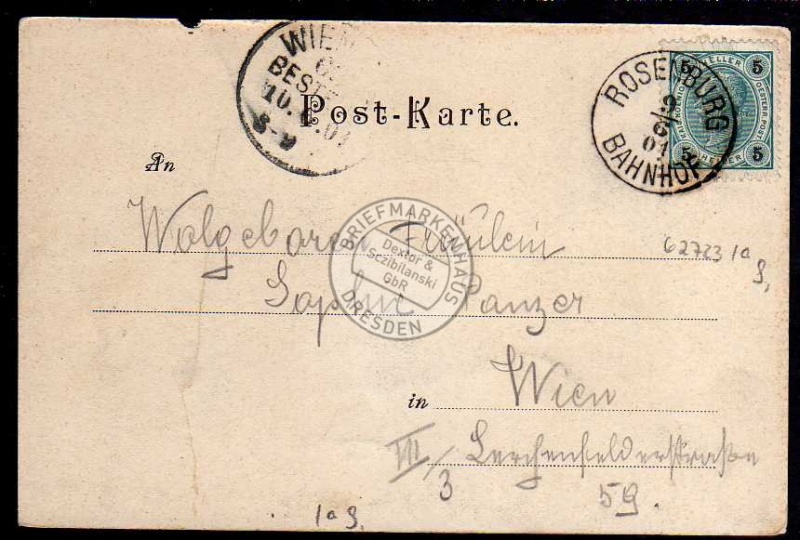 WIEN
BESTELLT
10.
8-9
Post-Karte.
ROSENBURG
9/6
01
BAHNHOF
5 HELLER 5
5 HELLER 5
An
Wolgeboren Fräulein
BRIEFMARKENHAUS
Dextor &
Sczibilanski
GbR
DRESDEN
62723 1a
S,
Sophie Panzer
in Wien
VII/3 Lerchenfelderstraße
59.
1a S,